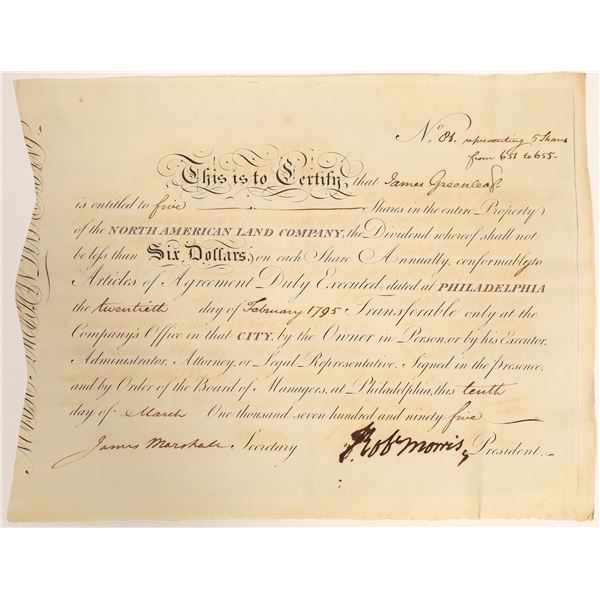 No. 81. representing 5 Shares
from 651 to 655-
This is to Certify, that James Greenleaf
is entitled to five Shares in the entire Property
of the NORTH AMERICAN LAND COMPANY, the Dividend whereof shall not
be less than Six Dollars, on each Share Annually, conformably to
Articles of Agreement Duly Executed, dated at PHILADELPHIA
the twentieth day of February 1795 Transferable only at the
Company's Office in that CITY, by the Owner in Person, or by his Executor,
Administrator, Attorney, or Legal Representative. Signed in the Presence,
and by Order of the Board of Managers, at Philadelphia, this tenth
day of March One thousand seven hundred and ninety five
James Marshall Secretary Rob Morris President